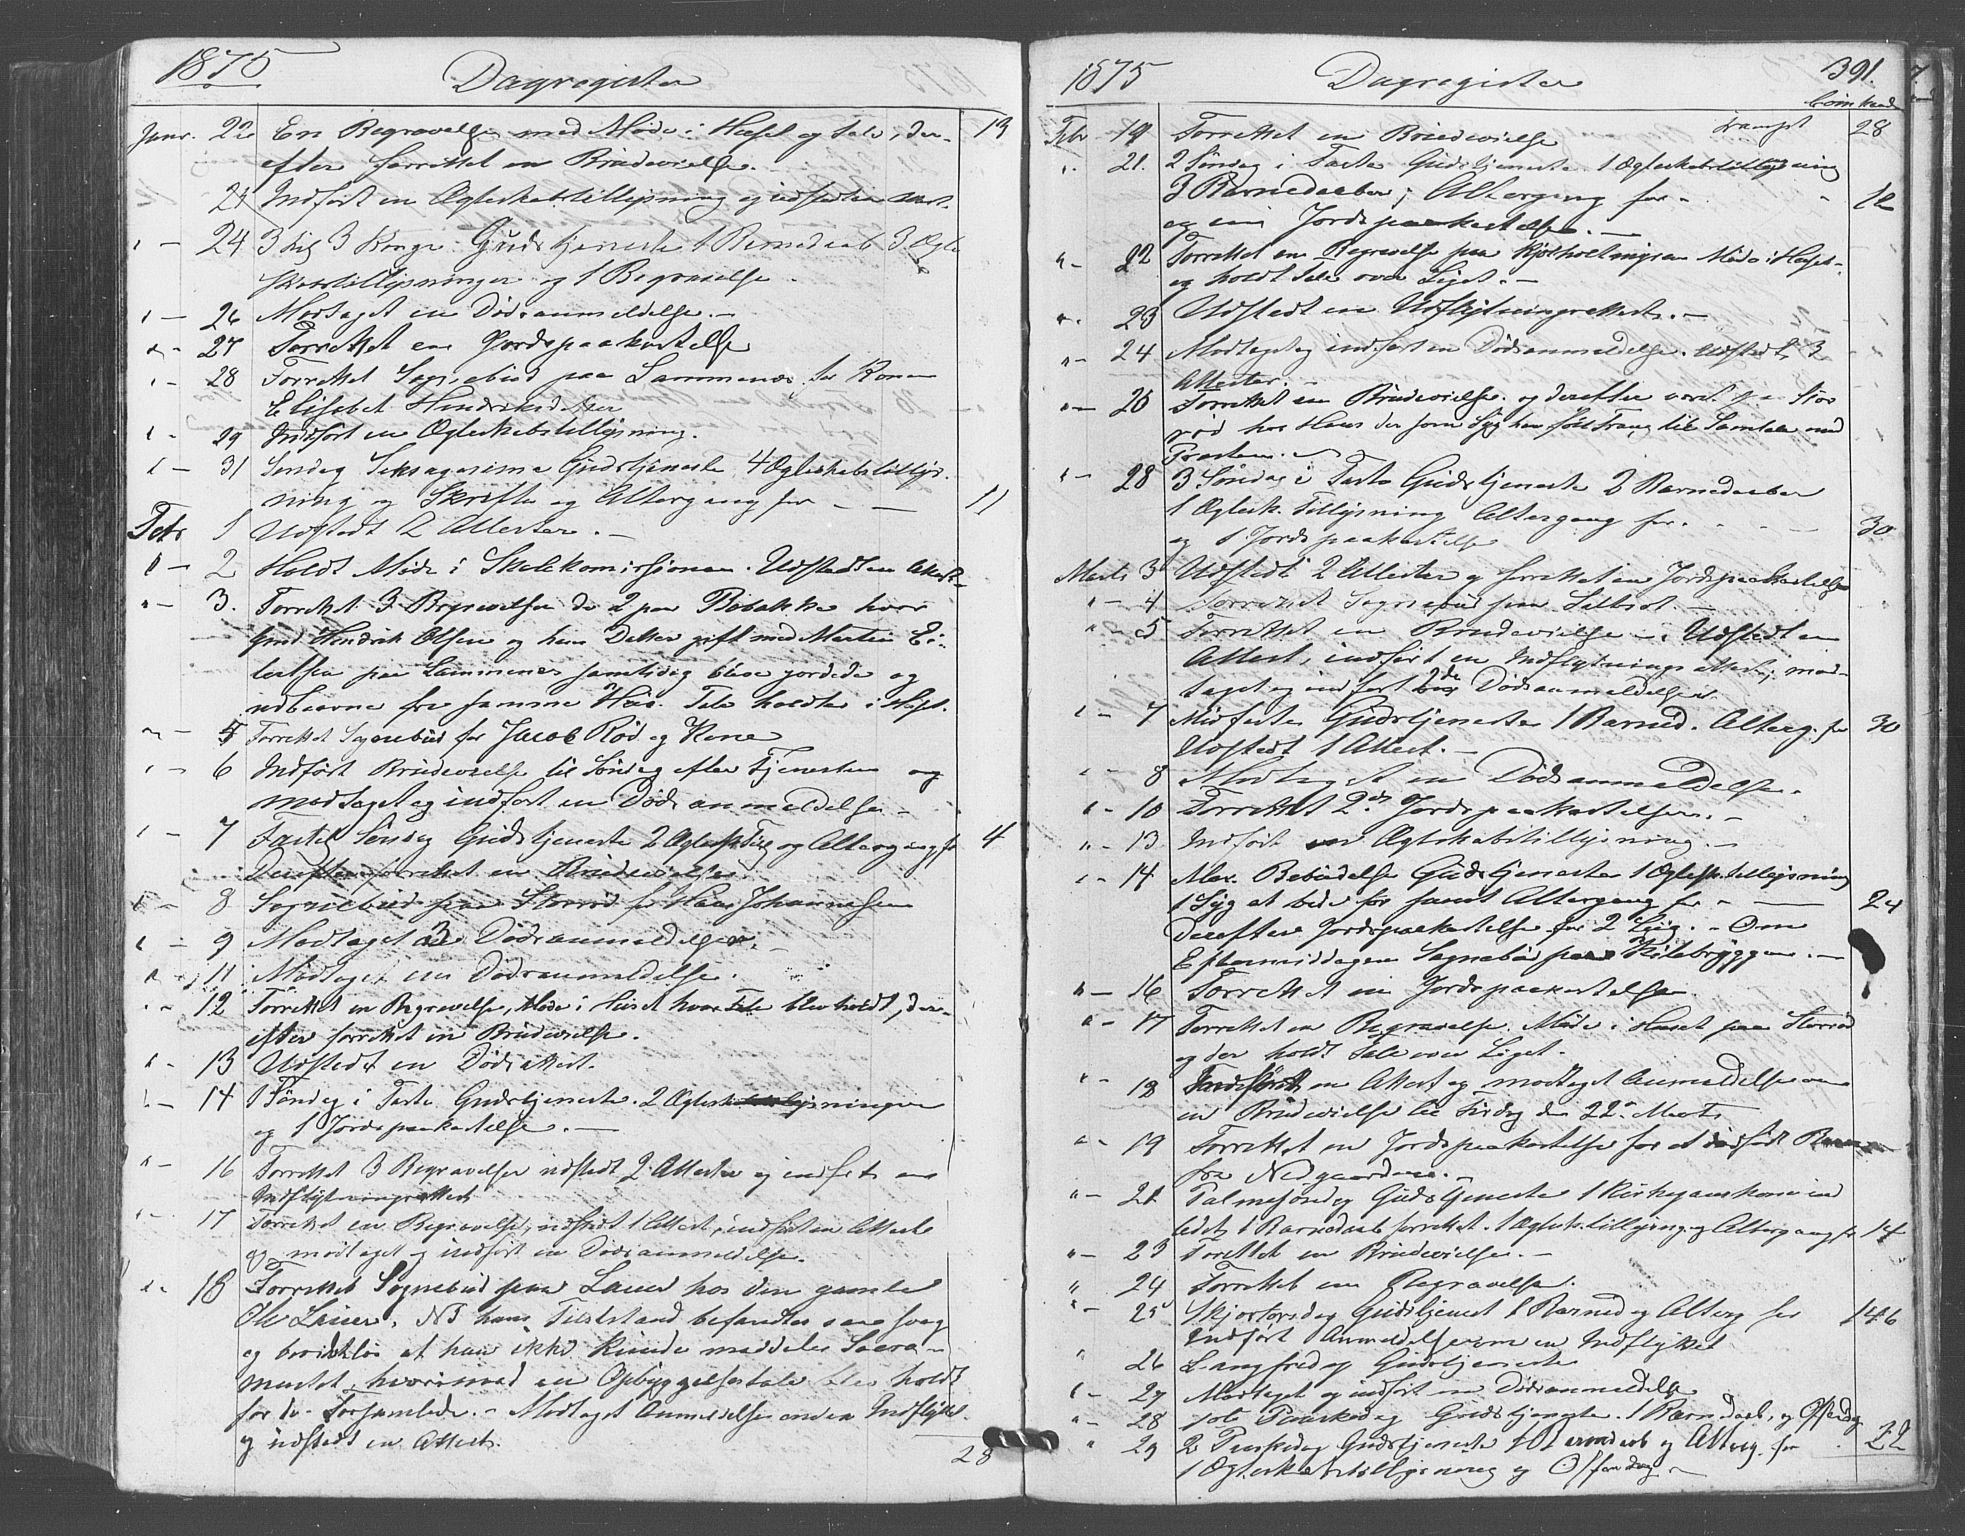 1875 Dagregister
Janr. 22 En Begravelse med Møde i Huset og Tale, der- 13
efter forrettet en Brudevielse.
23 Indført en Ægteskabstillysning og udstedt en Attest.
" — 24 3 Hel. 3 Konge Gudstjeneste 1 Barnedaab 3 Ægte
skabstillysninger og 1 Begravelse
" — 26 Modtaget en Dødsanmeldelse. —
" - 27 Forrettet en Jordspaakastelse
" - 28 Forrettet Sognebud paa Lammenes for Konen
Elisabet Hendriksdatter
" - 29 Indført en Ægteskabstillysning.
" — 31 Søndag Seksagesima Gudstjeneste, 4 Ægteskabstillys-
ning og Skrifte og Altergang for — — 11
Febr 1 Udstedt 2 Attester. —
" — 2 Holdt Møde i Skolekomissionen. Udstedt en Attest.
" — 3. Forrettet 3 Begravelser de 2 paa Bobakke hvor
Hendrik Olsen og hans Datter gift med Martin Ei-
lertsen paa Lammenes samtidig bleve jordede og
udbaarne fra samme Hus. Tale holdtes i Huset.
" — 5 Forrettet Sognebud for Jacob Rød og Kone
" — 6 Indført Brudevielse til Søndag efter Tjenesten og
modtaget og indført en Dødsanmeldelse —
" — 7 Faste Søndag Gudstjeneste 2 Ægtesk. Til. og Altergang for 4
Derefter forrettet en Brudevielse.
" — 8 Sognebud paa Storrød for Hans Johannesen
" — 9 Modtaget 3 Dødsanmeldelser. —
" — 11 Modtaget en Dødsanmeldelse.
" - 12 Forrettet en Begravelse, Møde i Huset hvor Tale blev holdt, der-
efter forrettet en Brudevielse.
" - 13 Udstedt en Dødsattest.
" — 14 1 Søndag i Faste Gudstjeneste. 2 Ægteskabstillysninger
og 1 Jordspaakastelse. —
" — 16 Forrettet 3 Begravelser udstedt 2 Attester og indført en
Indflytningsattest
" — 17 Forrettet en Begravelse, udstedt 1 Attest, indført en Attest
og modtaget og indført en Dødsanmeldelse.
" - 18 Forrettet Sognebud paa Lauer hos den gamle
Ole Lauer. NB hans Tilstand befandtes saa svag
og bevidstløs at han ikke kunde meddeles Sacra-
mentet, hvorimod en Opbyggelsestale blev holdt
for de Forsamlede. — Modtaget Anmeldelse om en Indflyttet
og udstedt en Attest.
28
1875 Dagregister 391.
Transpt 28
Febr 19 Forrettet en Brudevielse
" 21. 2 Søndag i Faste Gudstjeneste 1 Ægteskabstillysning
3 Barnedaaber; Altergang for - - 12
og en Jordspaakastelse. —
" - 22 Forrettet en Begravelse paa Kjølholtmyren Møde i Huset
og holdt Tale over Liget. —
" - 23 Udstedt en Udflytningsattest. —
" - 24 Modtaget og indført en Dødsanmeldelse. Udstedt 3
Attester. —
" — 26 Forrettet en Brudevielse og derefter været paa Stor
rød hos Hans der som Syg han følt Trang til Samtale med
Præsten.
" — 28 3 Søndag i Faste Gudstjeneste 3 Barnedaaber
1 Ægtesk. Tillysning Altergang for. - - — 30
og 1 Jordspaakastelse
Marts 3 Udstedt 2 Attester og forrettet en Jordspaakastelse
" — 4 Forrettet Sognebud paa
" — 5 Forrettet en Brudevielse —. Udstedt en
Attest, indført en Indflytningsattest, mod-
taget og indført 2de Dødsanmeldelser.
" — 7 Midfaste Gudstjeneste 1 Barned. Alterg. for 30
Udstedt 1 Attest. —
" — 8 Modtaget en Dødsanmeldelse.
" — 10 Forrettet 2de Jordspaakastelser. —
" - 13 Indført en Ægteskabstillysning. —
" - 14 Mar. Bebudelse Gudstjeneste 1 Ægtesk. tillysning
1 Syg at bede for samt Altergang for " — 24
Derefter Jordspaakastelse for 2 Lig. — Om
Eftermiddagen Sognebud paa Kilebryggen. —
" — 16 Forrettet en Jordspaakastelse
" - 17 Forrettet en Begravelse. Møde i Huset paa Storrød
og der holdt Tale over Liget.
" - 18 Indført en Attest og modtaget Anmeldelse om
en Brudevielse til Tirsdag den 22. Marts.
" - 19 Forrettet en Jordspaakastelse for et dødfødt Barn
fra Nedgaardene. —
" — 21 Palmesøndag Gudstjeneste 1 Kirkegangskone ind
ledet, 1 Barnedaab forrettet. 1 Ægtesk. tillysning og Altergang for 14
" — 23 Forrettet en Brudevielse. —
" 24 Forrettet en Begravelse.
" - 25 Skjærtorsdag Gudstjenest 1 Barned og Alterg for 146
Indført Anmeldelse om en Indflyttet
" 26 Langfredag Gudstjeneste
" — 27 Modtaget og indført en Dødsanmeldelse
" - 28 1ste Paaskedag Gudstjeneste. 1 Barnedaab, og Offerdag
" 29 2 Paaskedag Gudstjeneste 1 Barnedaab og Alterg. for . 22
1 Ægteskabstillysning og Offerdag —